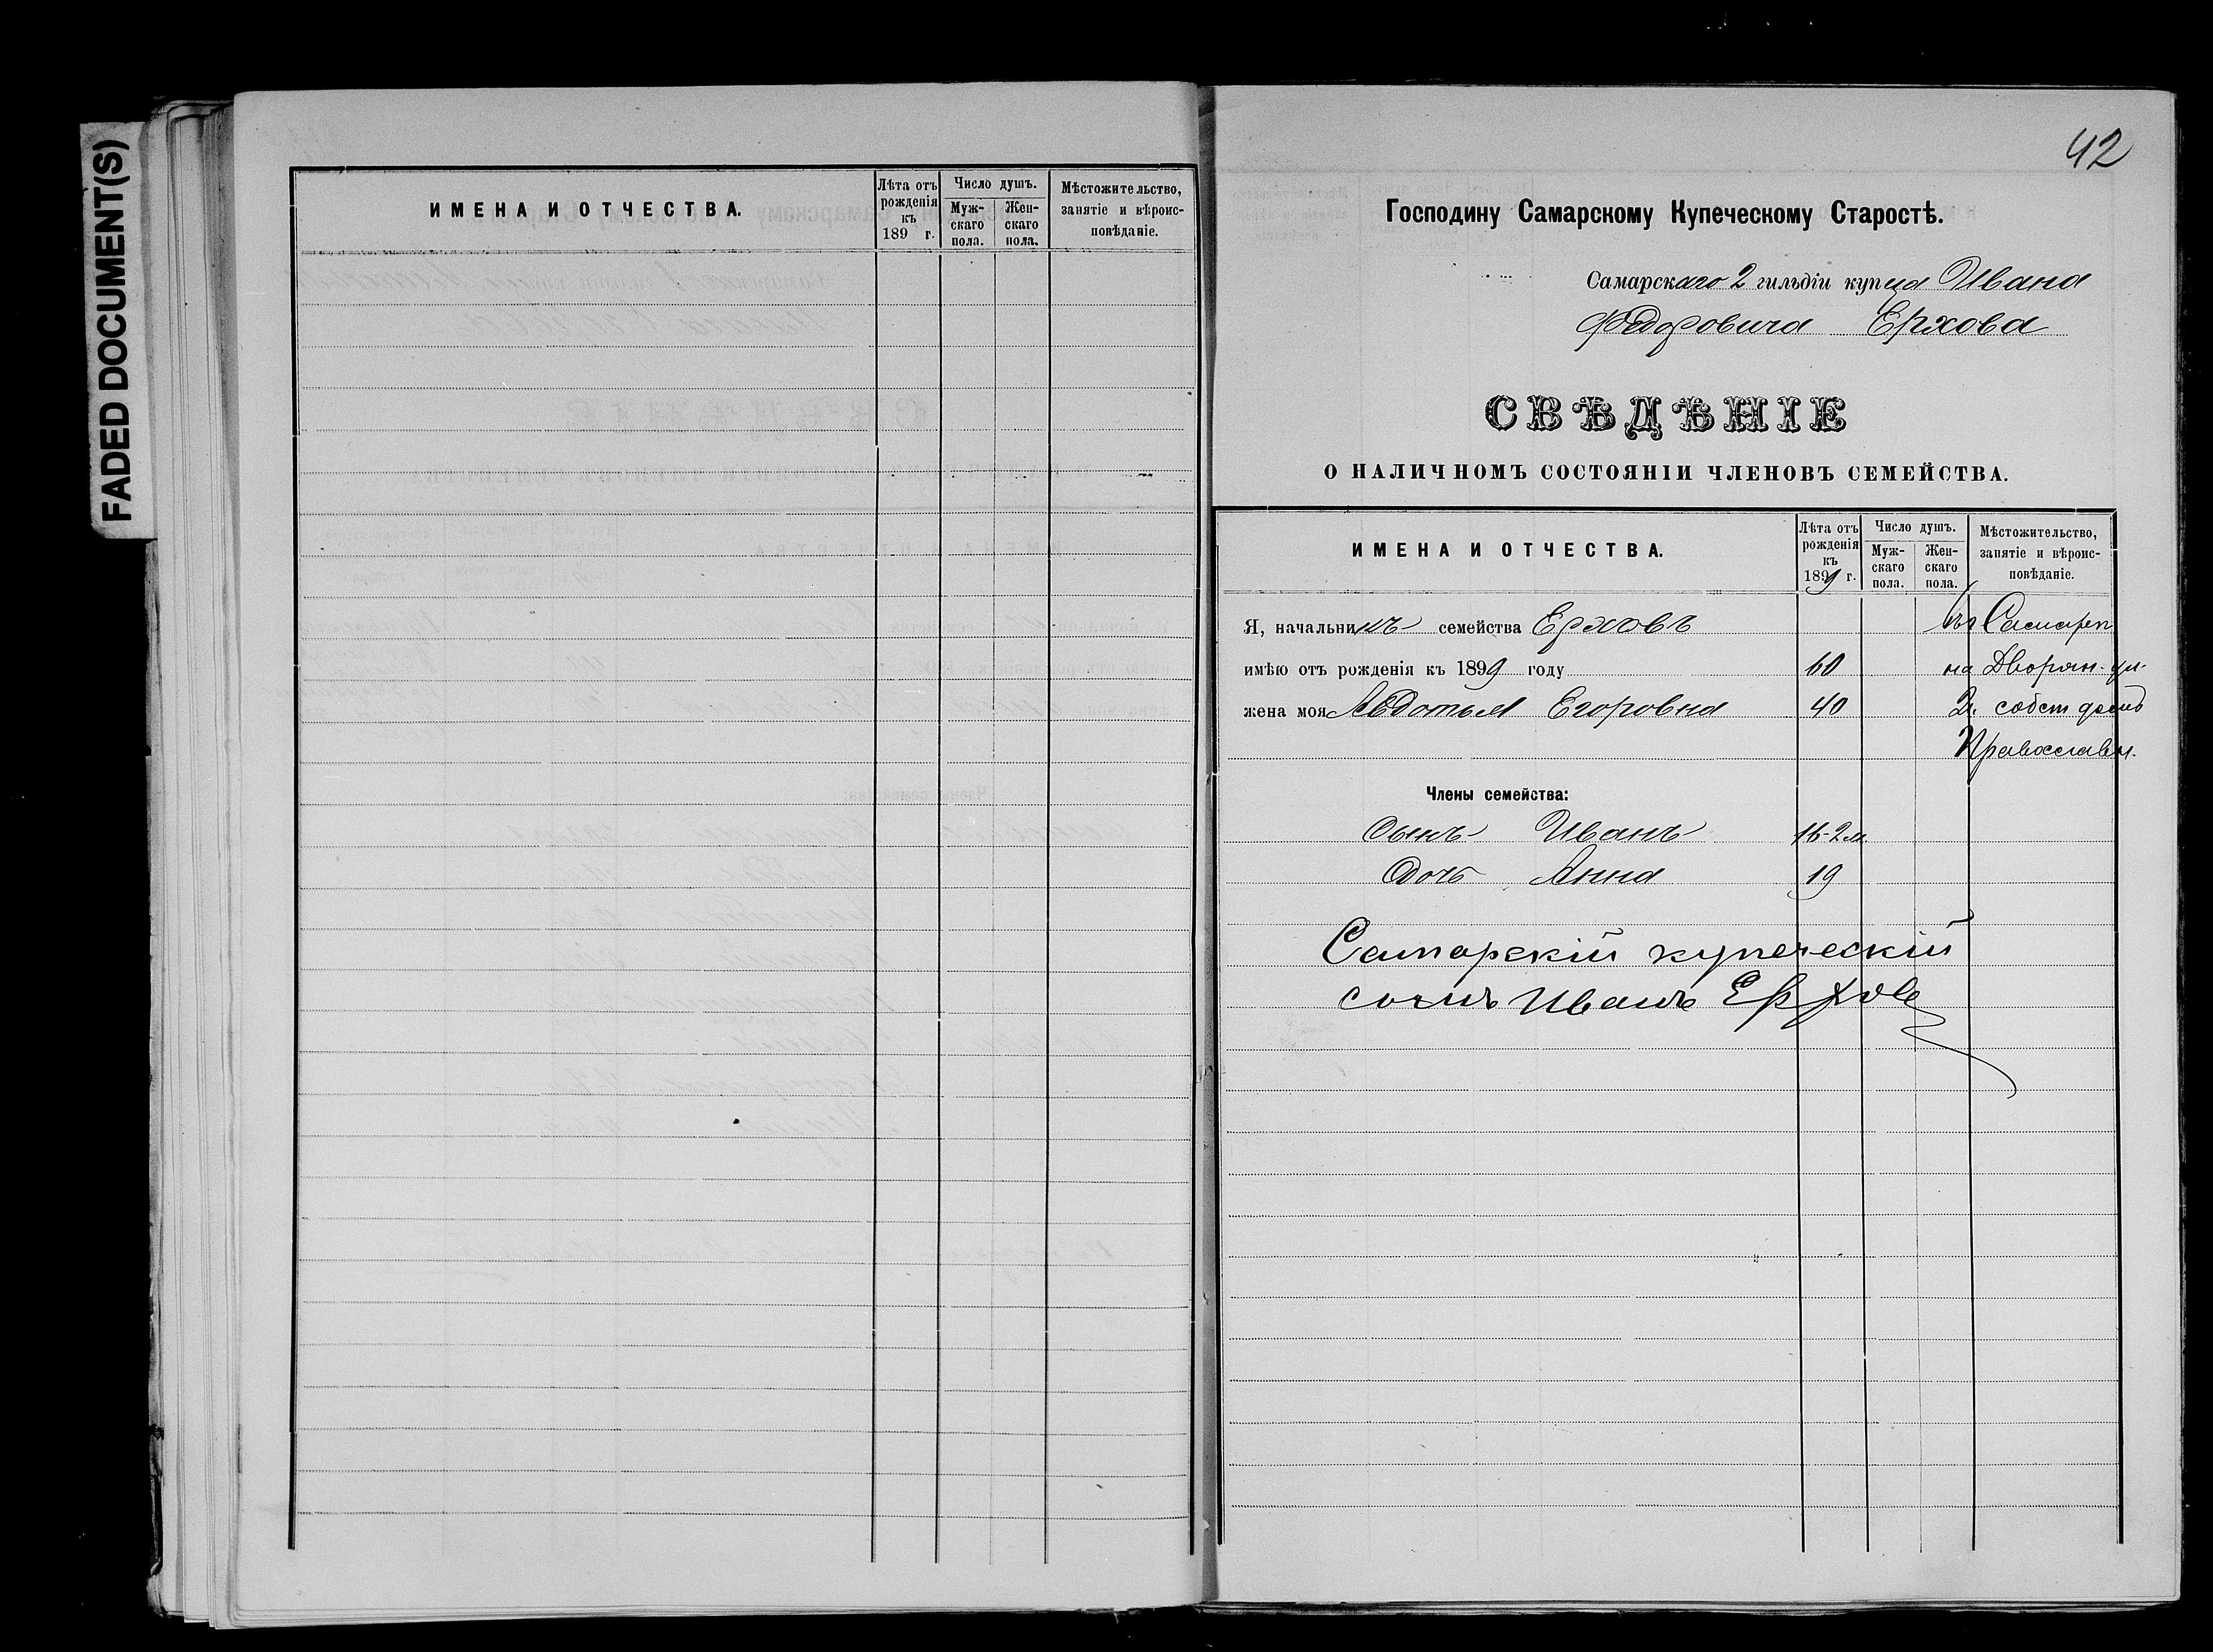 FADED DOCUMENT(S)
ИМЕНА И ОТЧЕСТВА.
Лѣта отъ рожденія къ 189 г.
Число душъ.
Мужскаго пола.
Женскаго пола.
Мѣстожительство, занятіе и вѣроисповѣданіе.
42
Господину Самарскому Купеческому Старостѣ.
Самарскаго 2 гильдіи купца Ивана
Федоровича Ерхова
СВѢДѢНІЕ
О НАЛИЧНОМЪ СОСТОЯНІИ ЧЛЕНОВЪ СЕМЕЙСТВА.
ИМЕНА И ОТЧЕСТВА.
Лѣта отъ рожденія къ 1899 г.
Число душъ.
Мужскаго пола.
Женскаго пола.
Мѣстожительство, занятіе и вѣроисповѣданіе.
Я, начальникъ семейства Ерховъ въ Самарѣ
имѣю отъ рожденія къ 1899 году 60 на Дворян. ул.
жена моя Авдотья Егоровна 40 собст домъ
Православн.
Члены семейства:
Сынъ Иванъ 16-2 м.
Дочь Анна 19
Самарскій купеческій
сынъ Иванъ Ерховъ